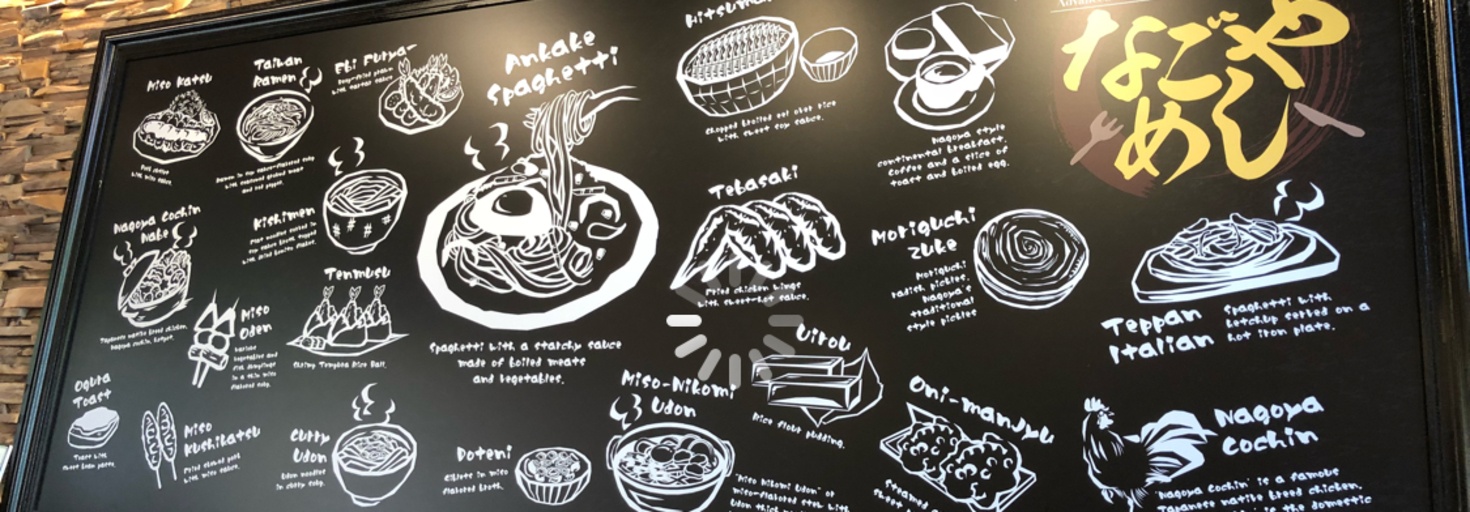 Miso Katsu
Pork cutlet
with miso sauce.
Taiwan
Ramen
and red pepper.
Ebi Furya-
Deep-fried prawn
with tartar sauce.
Ankake
Spaghetti
Spaghetti with a starchy sauce
made of boiled meats
and vegetables.
chopped broiled eel over rice
with sweet soy sauce.
Nagoya style
continental breakfast.
coffee and a slice of
toast and boiled egg.
なごや
めし
Nagoya Cochin
Nabe
Japanese native breed chicken,
Nagoya cochin, hotpot.
Kishimen
Tebasaki
Fried chicken wings
with sweet-hot sauce.
Moriguchi
Zuke
Moriguchi
radish pickles.
Nagoya's
traditional
style pickles
Teppan
Italian
Spaghetti with
ketchup served on a
hot iron plate.
Miso
Oden
Various
vegetables and
fish dumplings
in a thin miso
flavored soup.
Tenmusu
Shrimp Tempura Rice Ball.
Uirou
Rice flour pudding.
Ogura
Toast
Toast with
sweet bean paste.
Miso
Kushikatsu
Fried skewed pork
with miso sauce.
Curry
Udon
Udon noodles
in curry soup.
Doteni
Giblets in miso
flavored broth.
Miso-Nikomi
Udon
"Miso Nikomi Udon" or
miso-flavored stew with
Oni-manjyu
Steamed
Nagoya
Cochin
"Nagoya Cochin" is a famous
Japanese native breed chicken.
is the domestic